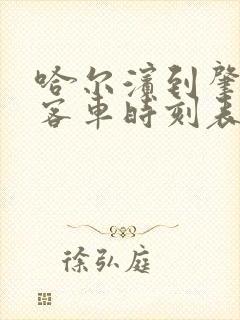 哈尔滨到肇
客车时刻表
徐弘庭